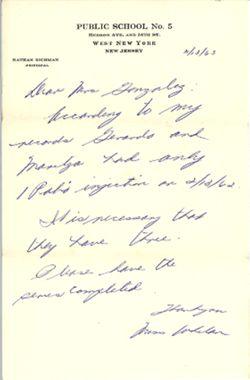 PUBLIC SCHOOL No. 5
HUDSON AVE. AND 54TH ST.
WEST NEW YORK
NEW JERSEY
NATHAN RICHMAN
PRINCIPAL
2/13/63
Dear Mrs Gonzalez:
According to my
records Gerardo and
Maritza had only
1 Polio injection on 2/13/62.
It is necessary that
they have three.
Please have the
series completed.
Thank you
Miss